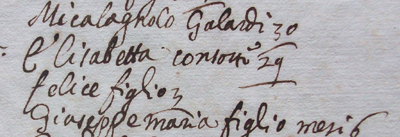 Micalagnolo Galardi 30
Elisabetta consorte 29
felice figlio 3
Giuseppe maria figlio mesi 6